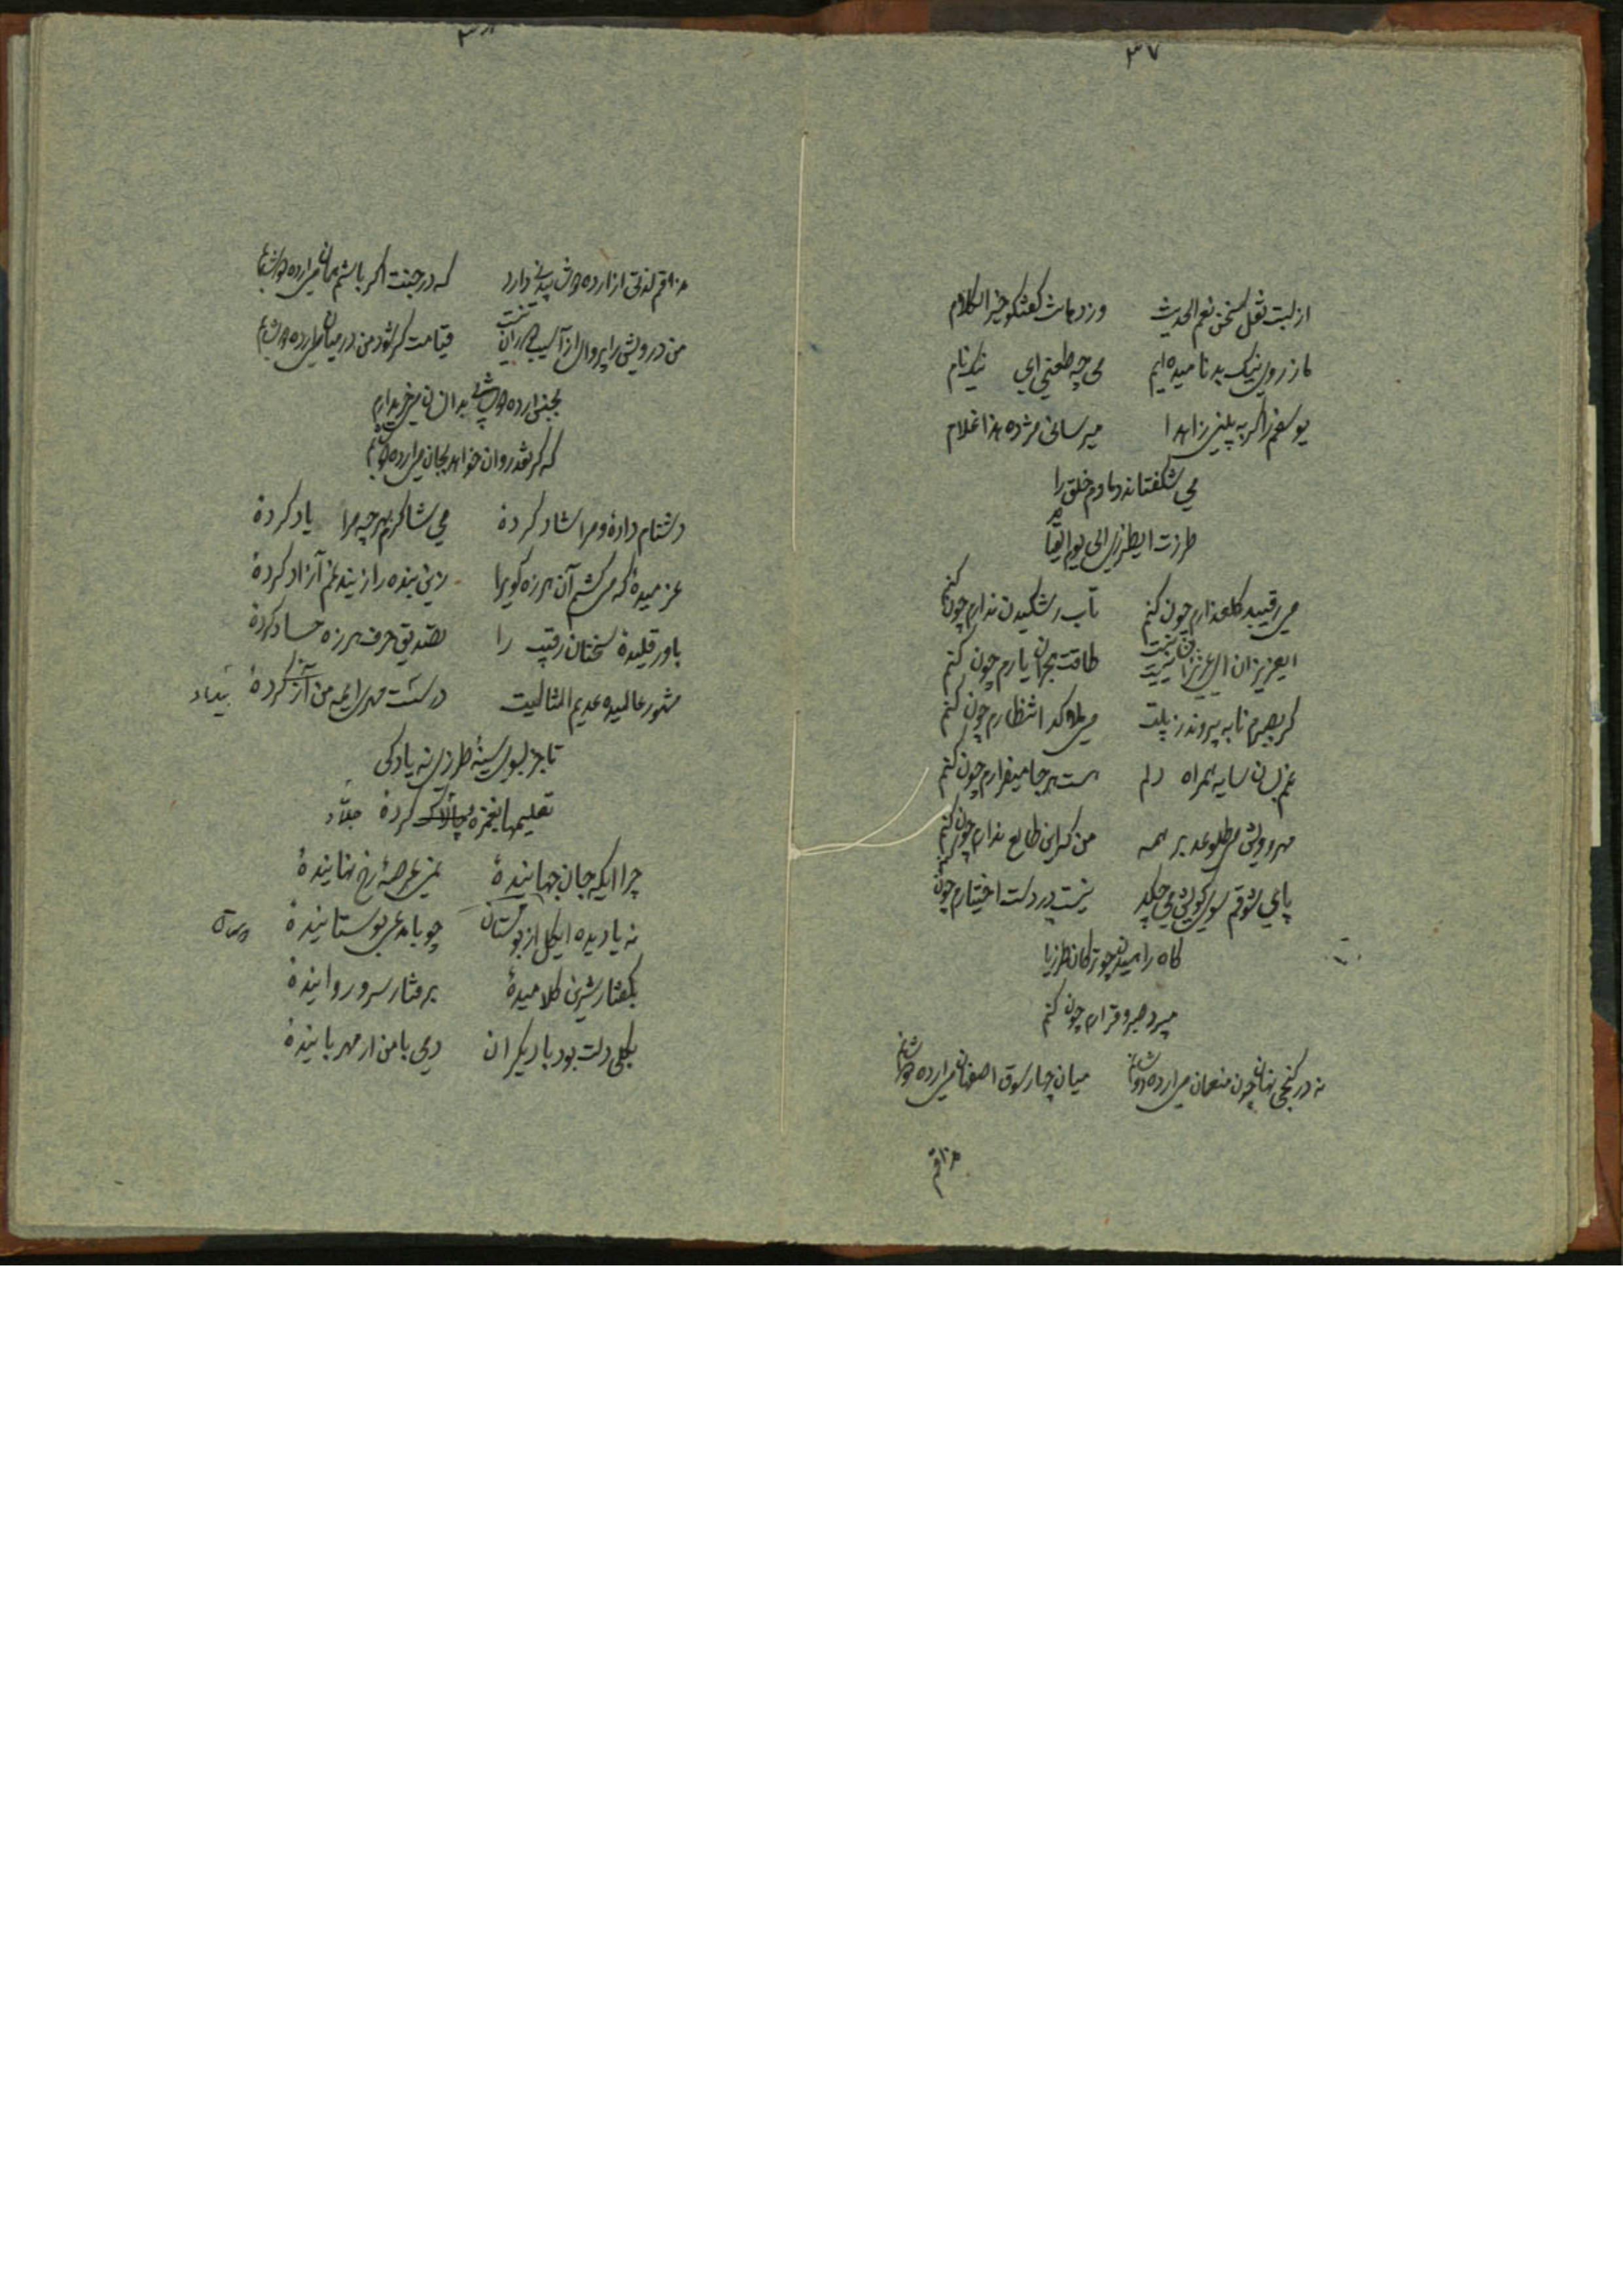 ۳۷
از لبت نقل سخن نعم الحدیث وز دهانت گفتگو خیر الکلام
ما ز روی نیک بدنامیده‌ایم می چه طعنی ای نیک نام
یوسفم را گر به پلنی زاهدا میرسانی مژده هذا غلام
می شگفتاند دمادم خلق را
طرزت ای طرزی الی یوم القیام
می رقیبد گلعذارم چون کنم تاب رشکیدن ندارم چون کنم
ای عزیزان ای عزیزان طاقت هجران یارم چون کنم
گر بصبرم تا به پیروندز پلت می‌هلاکد انتظارم چون کنم
غم بسان سایه همراه دلم هست هرجا میفرارم چون کنم
مهر رویش می طلوعد بر همه من که این طالع ندارم چون کنم
پای شوقم سوی کویش می‌چلپد نیست در دست اختیارم چون کنم
گاه رامیدن چو ترکان طرزیا
میبرد صبر و قرارم چون کنم
نه در کنجی نهان چون منعمان می ارده دوشابم میان چارسوق اصفهان می ارده دوشابم
مذاقم
۳۸
مذاقم لذتی از ارده دوشاب دارد که در جنت اگر باشم همان می ارده دوشابم
من درویش را پروای از آسیب قیامت گر شود من در میان می ارده دوشابم
بجنی ارده دوشابی بدانسان می خریدارم
که گر نقد روان خواهد بجان می ارده دوشابم
دشنام دادهٔ و مرا شاد کردهٔ می شاکرم بهرچه مرا یاد کردهٔ
عزمیدهٔ که می کشم آن هرزه گوی را زین بنده را ز بند غم آزاد کردهٔ
باورقلیدهٔ سخنان رقیب را تصدیق حرف هرزه حساد کردهٔ
مشهور عالمیده عدیم المثالیت درست مهری ای مه من کردهٔ بیداد
تا جز بسوی سینهٔ طرزی نه یادکی
تعلیمها بغمزهٔ چالاک کردهٔ جلّاد
چرا ایکه جان جهانیندهٔ بمن عرصهٔ رخ نهانیندهٔ
نه یا دیده ای گل از بوستان چو با مدعی بوستانیندهٔ
بگفتار شیرین کلامیدهٔ برفتار سرو روانیندهٔ
بکلی دلت بود با دیگران دمی با من ار مهربانیندهٔ